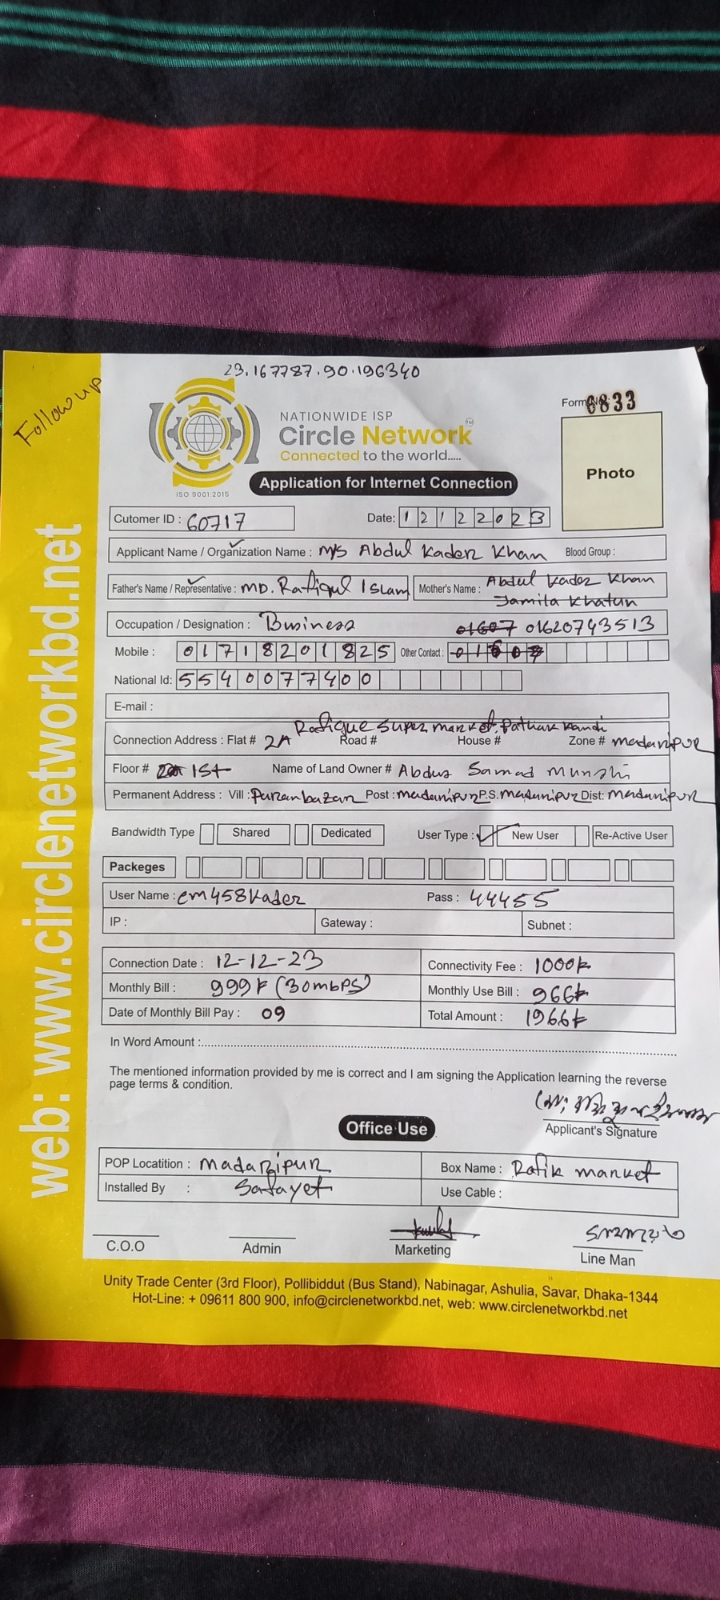 23.167787.90.196340
Follow up
Form No 6833
NATIONWIDE ISP
Circle Network
Connected to the world.....
ISO 9001:2015
Application for Internet Connection
Photo
Cutomer ID : 60717 Date: 12122023
Applicant Name / Organization Name : M/S Abdul Kader Khan Blood Group :
Father's Name / Representative : MD. Rafiqul Islam Mother's Name : Abdul Kader Khan
Jamila Khatun
Occupation / Designation : Business 01607 01620743513
Mobile : 01718201825 Other Contact :
National Id: 5540077400
E-mail :
Rafique Super market. Pathak Kandi
Connection Address : Flat # 2A Road # House # Zone # madaripur
Floor # 1st Name of Land Owner # Abdus Samad Munshi
Permanent Address : Vill : Puranbazar Post : madaripur P.S. madaripur Dist: madaripur
Bandwidth Type Shared Dedicated User Type : New User Re-Active User
Packeges
User Name : cm458kader Pass : 44455
IP : Gateway : Subnet :
Connection Date : 12-12-23 Connectivity Fee : 1000৳
Monthly Bill : 999৳ (30mbps) Monthly Use Bill : 966৳
Date of Monthly Bill Pay : 09 Total Amount : 1966৳
In Word Amount :
The mentioned information provided by me is correct and I am signing the Application learning the reverse
page terms & condition.
Applicant's Signature
Office Use
POP Locatition : Madaripur Box Name : Rafik market
Installed By : Safayet Use Cable :
C.O.O Admin Marketing Line Man
Unity Trade Center (3rd Floor), Pollibiddut (Bus Stand), Nabinagar, Ashulia, Savar, Dhaka-1344
Hot-Line: + 09611 800 900, info@circlenetworkbd.net, web: www.circlenetworkbd.net
web: www.circlenetworkbd.net